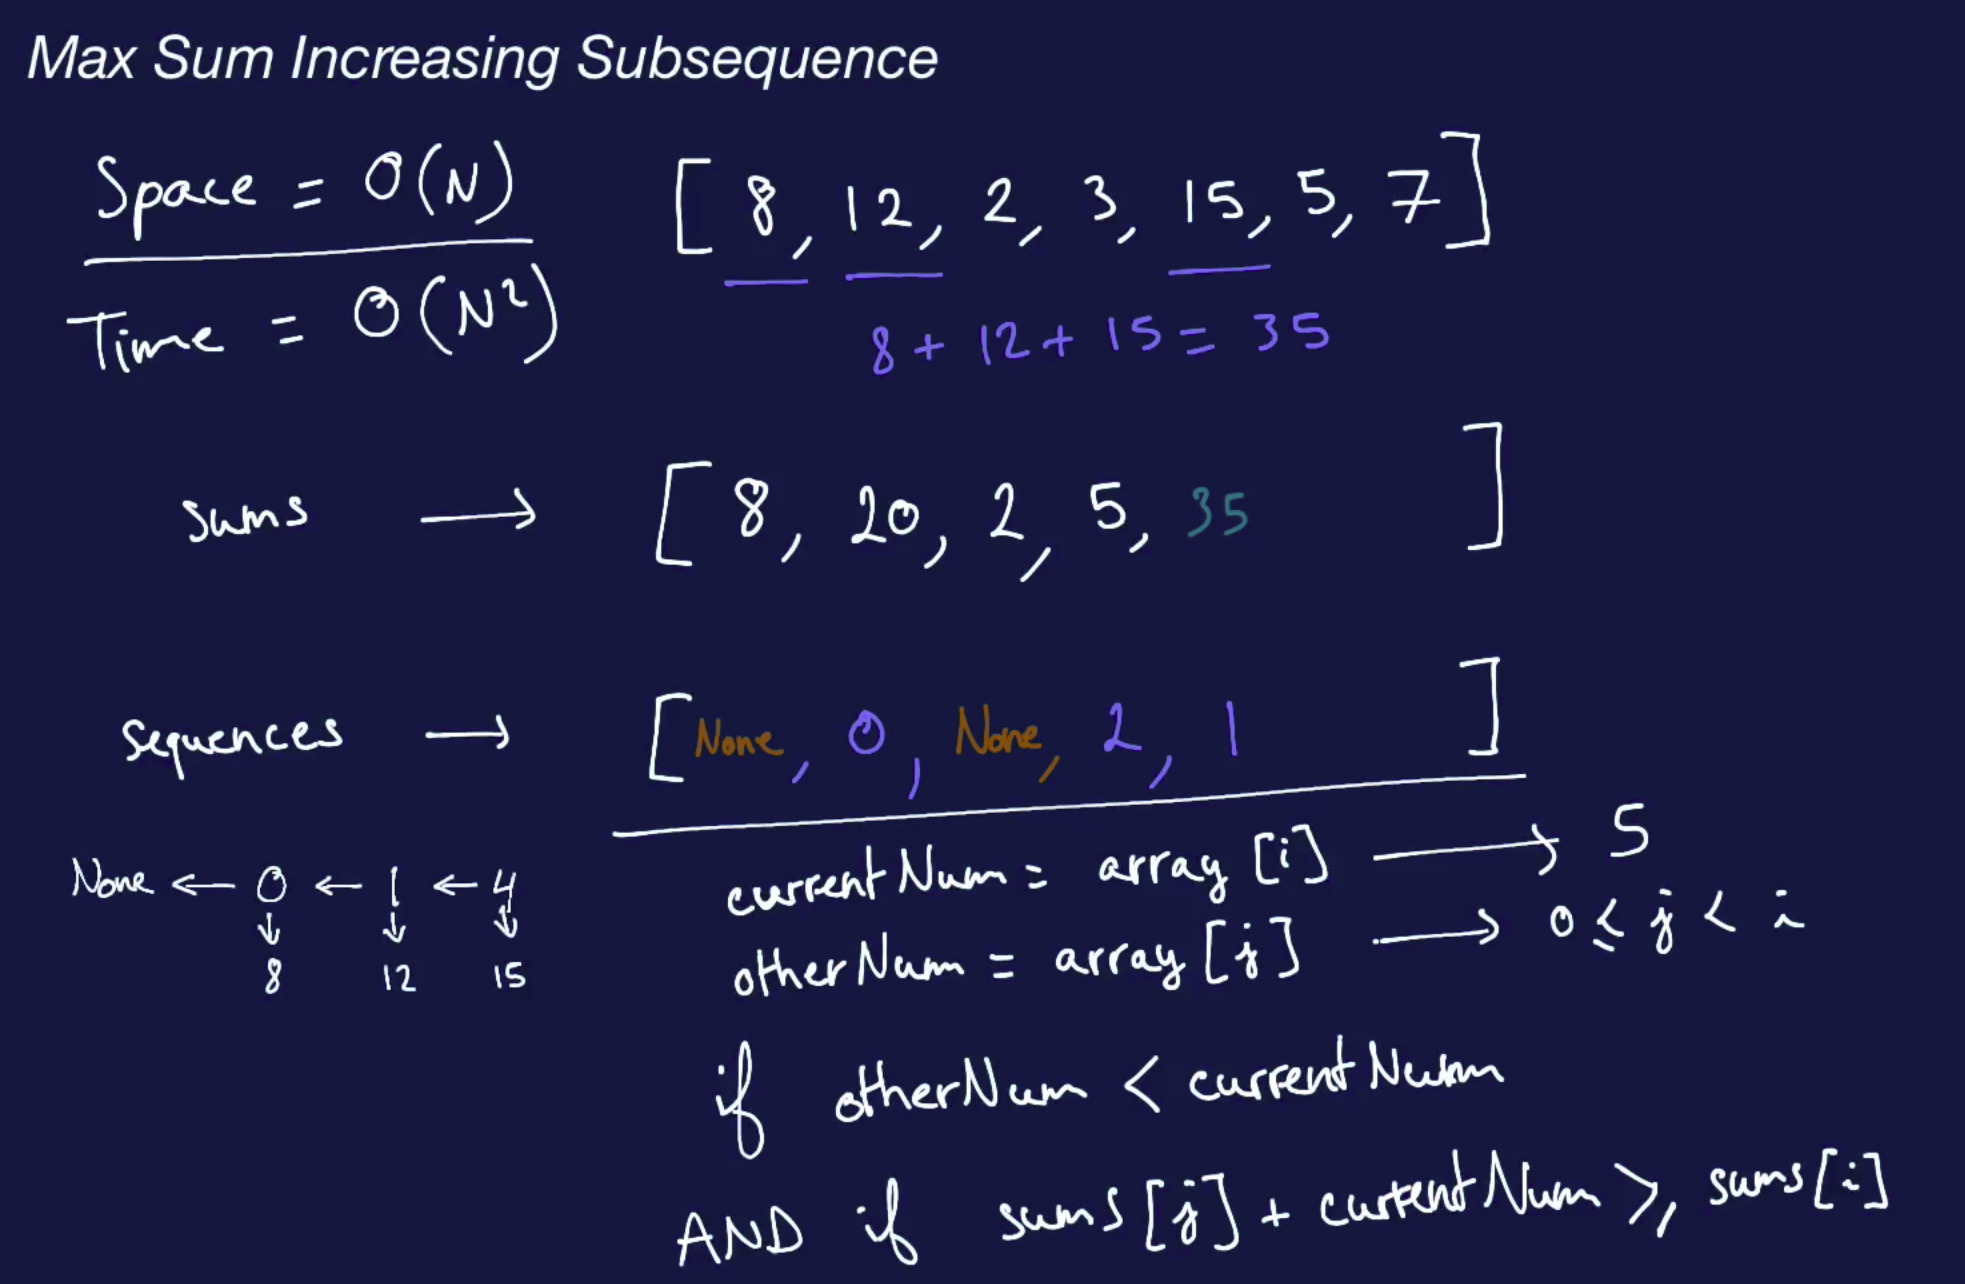 Max Sum Increasing Subsequence
Space = O(N)
Time = O(N²)
[8, 12, 2, 3, 15, 5, 7]
8 + 12 + 15 = 35
sums → [8, 20, 2, 5, 35 ]
sequences → [None, 0, None, 2, 1 ]
None ← 0 ← 1 ← 4
↓ ↓ ↓
8 12 15
currentNum = array [i] → 5
otherNum = array [j] → 0 ≤ j < i
if otherNum < currentNum
AND if sums [j] + currentNum ≥ sums [i]